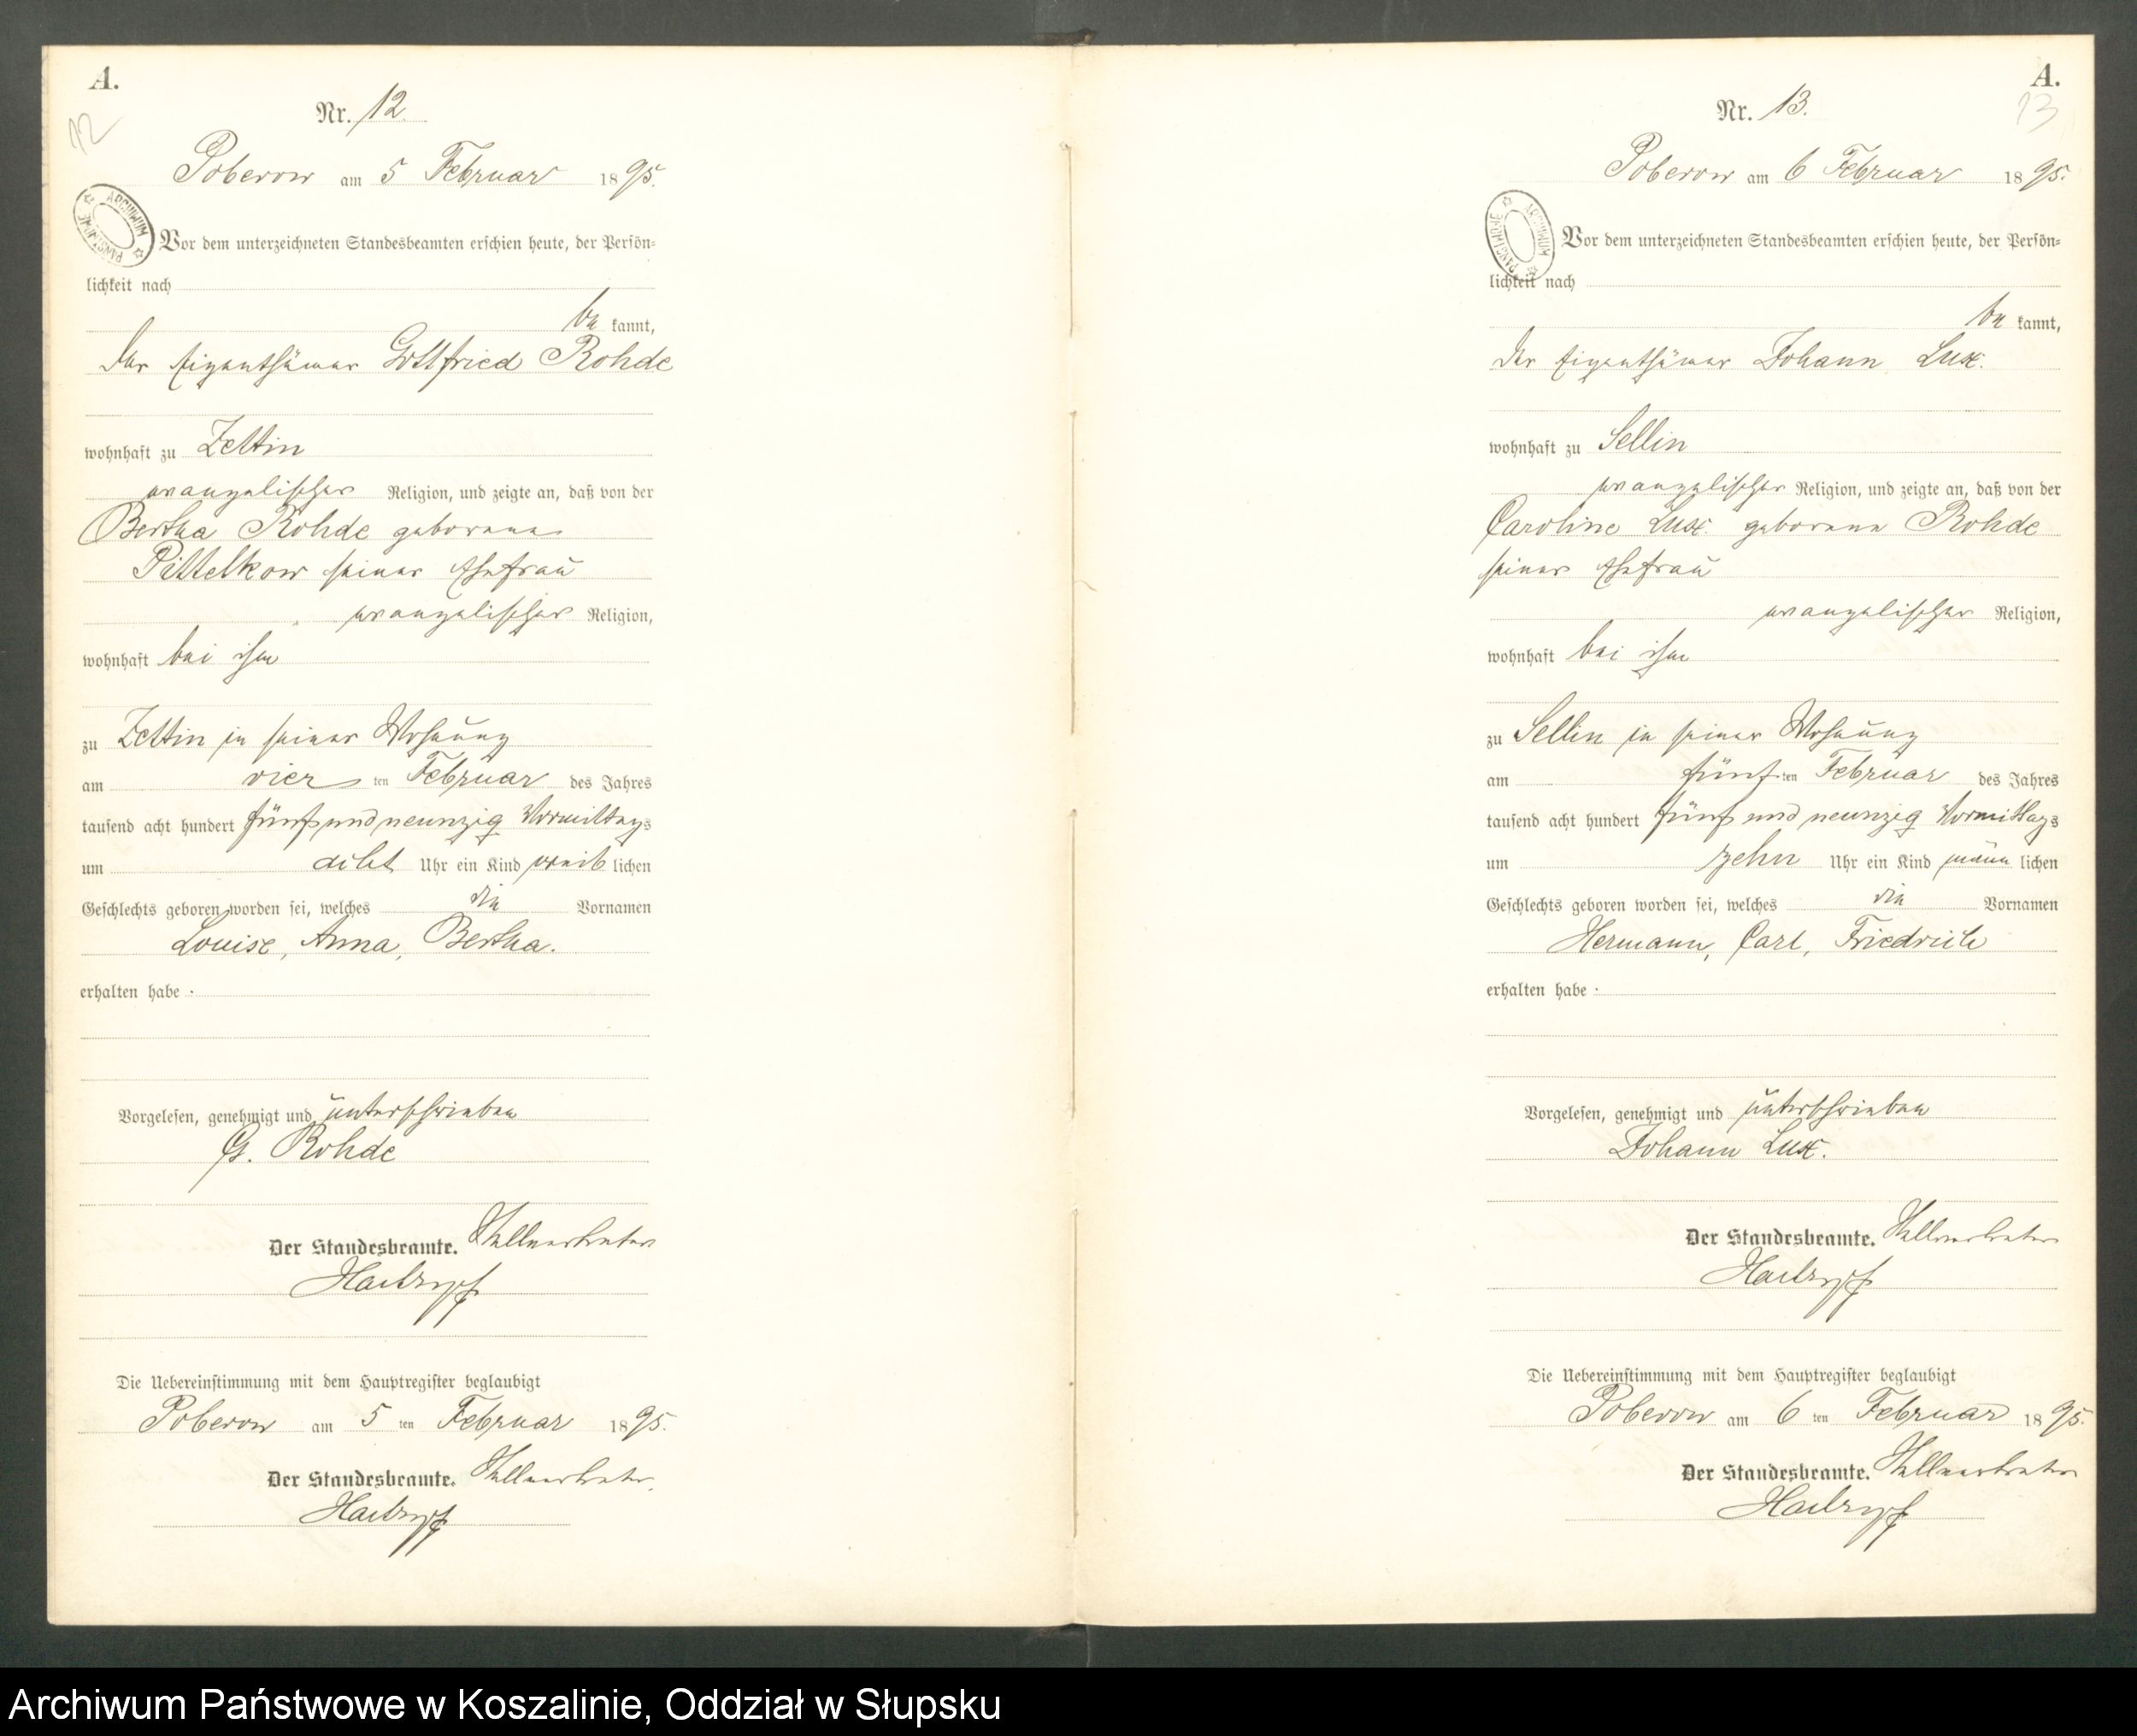 A.
12
Nr. 12.
Poberow am 5 Februar 1895.
ARCHIWUM PAŃSTWOWE
Vor dem unterzeichneten Standesbeamten erschien heute, der Persön-
lichkeit nach
be kannt,
der Eigenthümer Gottfried Rohde
wohnhaft zu Zettin
evangelischer Religion, und zeigte an, daß von der
Bertha Rohde geborene
Pittelkow seiner Ehefrau
evangelischer Religion,
wohnhaft bei ihm
zu Zettin in seiner Wohnung
am vier ten Februar des Jahres
tausend acht hundert fünf und neunzig Vormittags
um acht Uhr ein Kind weib lichen
Geschlechts geboren worden sei, welches die Vornamen
Louise, Anna, Bertha.
erhalten habe.
Vorgelesen, genehmigt und unterschrieben
G. Rohde
Der Standesbeamte. Stellvertreter
Die Uebereinstimmung mit dem Hauptregister beglaubigt
Poberow am 5 ten Februar 1895.
Der Standesbeamte. Stellvertreter.
A.
13
Nr. 13.
Poberow am 6 Februar 1895.
ARCHIWUM PAŃSTWOWE
Vor dem unterzeichneten Standesbeamten erschien heute, der Persön-
lichkeit nach
be kannt,
der Eigenthümer Johann Lux.
wohnhaft zu Sellin
evangelischer Religion, und zeigte an, daß von der
Caroline Lux. geborene Rohde
seiner Ehefrau
evangelischer Religion,
wohnhaft bei ihm
zu Sellin in seiner Wohnung
am fünf ten Februar des Jahres
tausend acht hundert fünf und neunzig Vormittags
um zehn Uhr ein Kind männ lichen
Geschlechts geboren worden sei, welches die Vornamen
Hermann, Carl, Friedrich
erhalten habe.
Vorgelesen, genehmigt und unterschrieben
Johann Lux.
Der Standesbeamte. Stellvertreter
Die Uebereinstimmung mit dem Hauptregister beglaubigt
Poberow am 6 ten Februar 1895.
Der Standesbeamte. Stellvertreter
Archiwum Państwowe w Koszalinie, Oddział w Słupsku